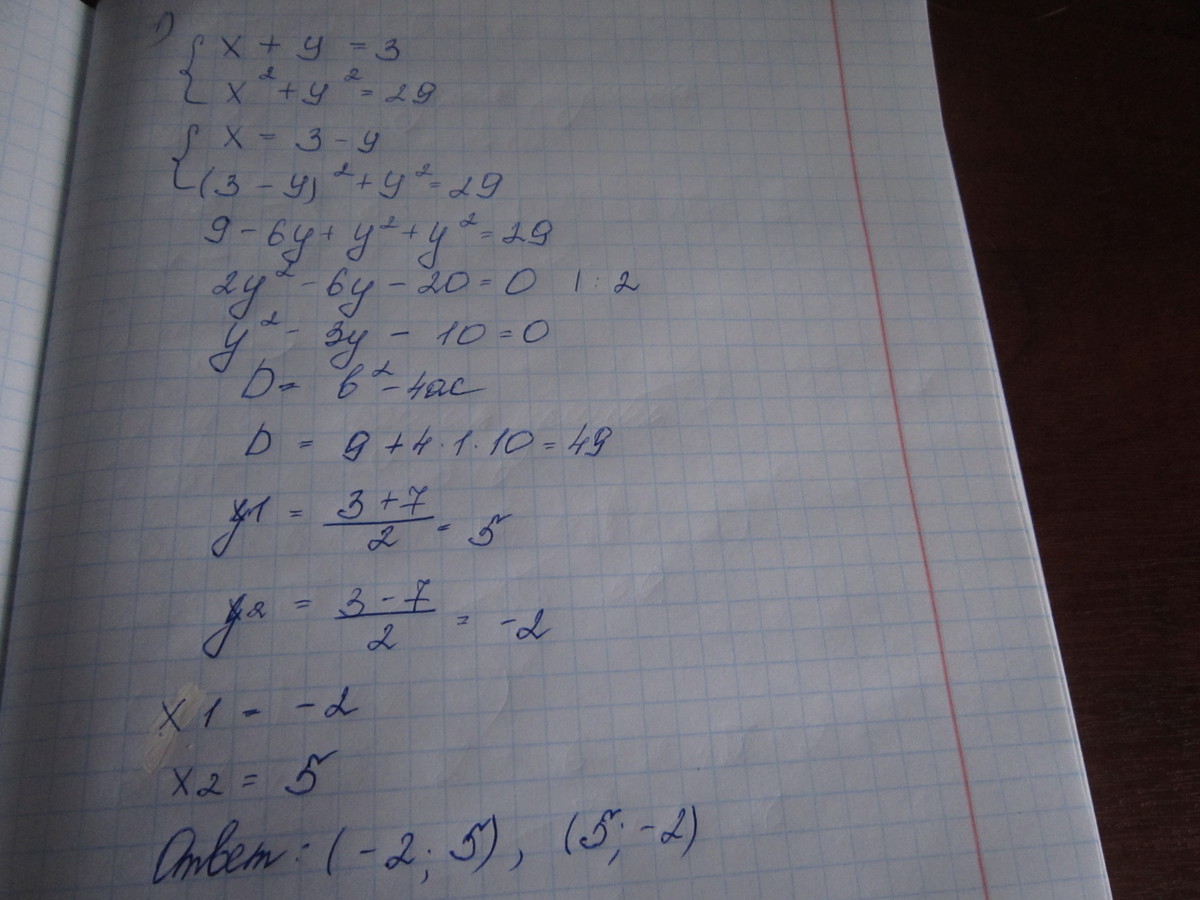 1)
{ x + y = 3
x² + y² = 29
{ x = 3 - y
(3 - y)² + y² = 29
9 - 6y + y² + y² = 29
2y² - 6y - 20 = 0 | : 2
y² - 3y - 10 = 0
D = b² - 4ac
D = 9 + 4 · 1 · 10 = 49
y1 = (3 + 7)/2 = 5
y2 = (3 - 7)/2 = -2
x1 = -2
x2 = 5
Ответ: (-2; 5), (5; -2)